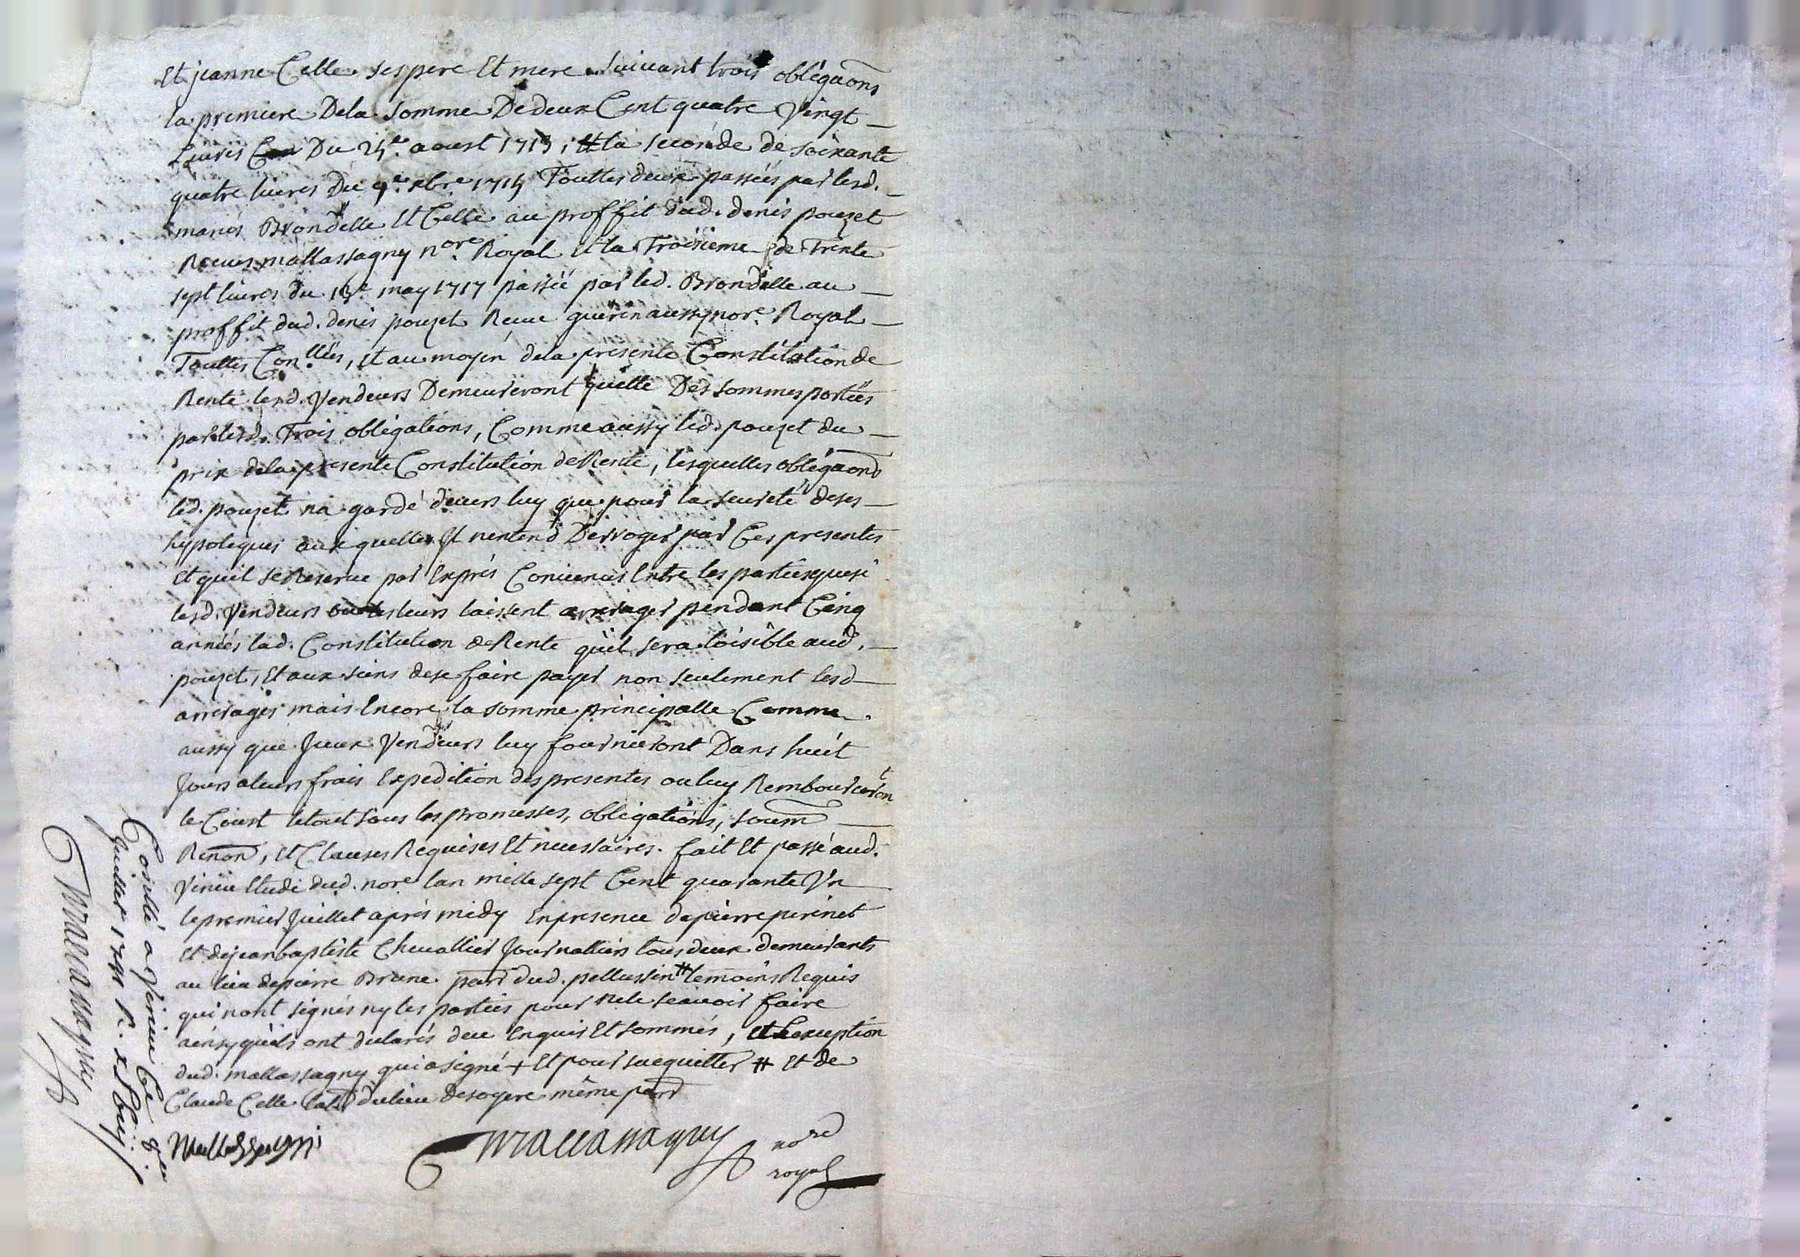 Et jeanne Celle ses pere Et mere suivant trois obliga͞ons
la premiere Dela Somme De deux Cent quatre Vingt
Livres Du 25e. aoust 1713, Et la seconde de soixante
quatre livres Du 9e. xbre 1715 Touttes deux passées par lesd.
mariés Brondelle Et Celle au proffit dud. denis pouzet
Receus mallassagny nore. Royal Et la Troisieme de Trente
sept livres du 18e may 1717 passée par led. Brondelle au
proffit dud. denis pouzet Receue guerin aussy nore. Royal
Touttes Con.llées, Et au moyen dela presente Constitution de
Rente lesd. Vendeurs Demeureront quitte Des sommes portées
par lesd. Trois obligations, Comme aussy led. pouzet du
prix dela presente Constitution de Rente, lesquelles obliga͞ons
led. pouzet na gardé devers luy que pour la seureté de ses
hypoteques aux quelles Il nentend Derroger par Ces presentes
Et quil se Reserve par Exprés Convenus Entre les parties que si
lesd. Vendeurs ou les leurs laissent arrerages pendant Cinq
années lad. Constitution de Rente quil sera loisible aud.
pouzet, Et aux siens de se faire payer non seulement lesd
arrerages mais Encore la somme principalle Comme
aussy que Iceux Vendeurs luy fourniront Dans huit
Jours a leurs frais Expedition des presentes ou luy Rembourseront
le Coust le tout sous les promesses, obligations, soum͞
Renon͞, Et Clauses Requises Et necessaires. fait Et passé aud.
Virieu Etude dud. nore lan mille sept Cent quarante Un
le premier Juillet aprés midy En presence de pierre perinet
Et de jean baptiste Chevallier Journalliers tous deux demeurants
au lieu de pierre Brune par͞ dud. pellussin # temoins Requis
qui nont signés ny les parties pour ne le scavoir faire
ainsy quils ont declarés deu Enquis Et sommés, a Lexception
dud. mallassagny qui a signé + Et pour sacquitter # Et de
Claude Celle du lieu De soyere même par͞
Mallassagny
Mallassagny nore
royal
Conllé a Virieu Ce 8e
Juillet 1741 R.
Mallassagny